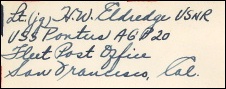 Lt. (jg) H.W. Eldredge USNR
USS Pontus AGP 20
Fleet Post Office
San Francisco, Cal.